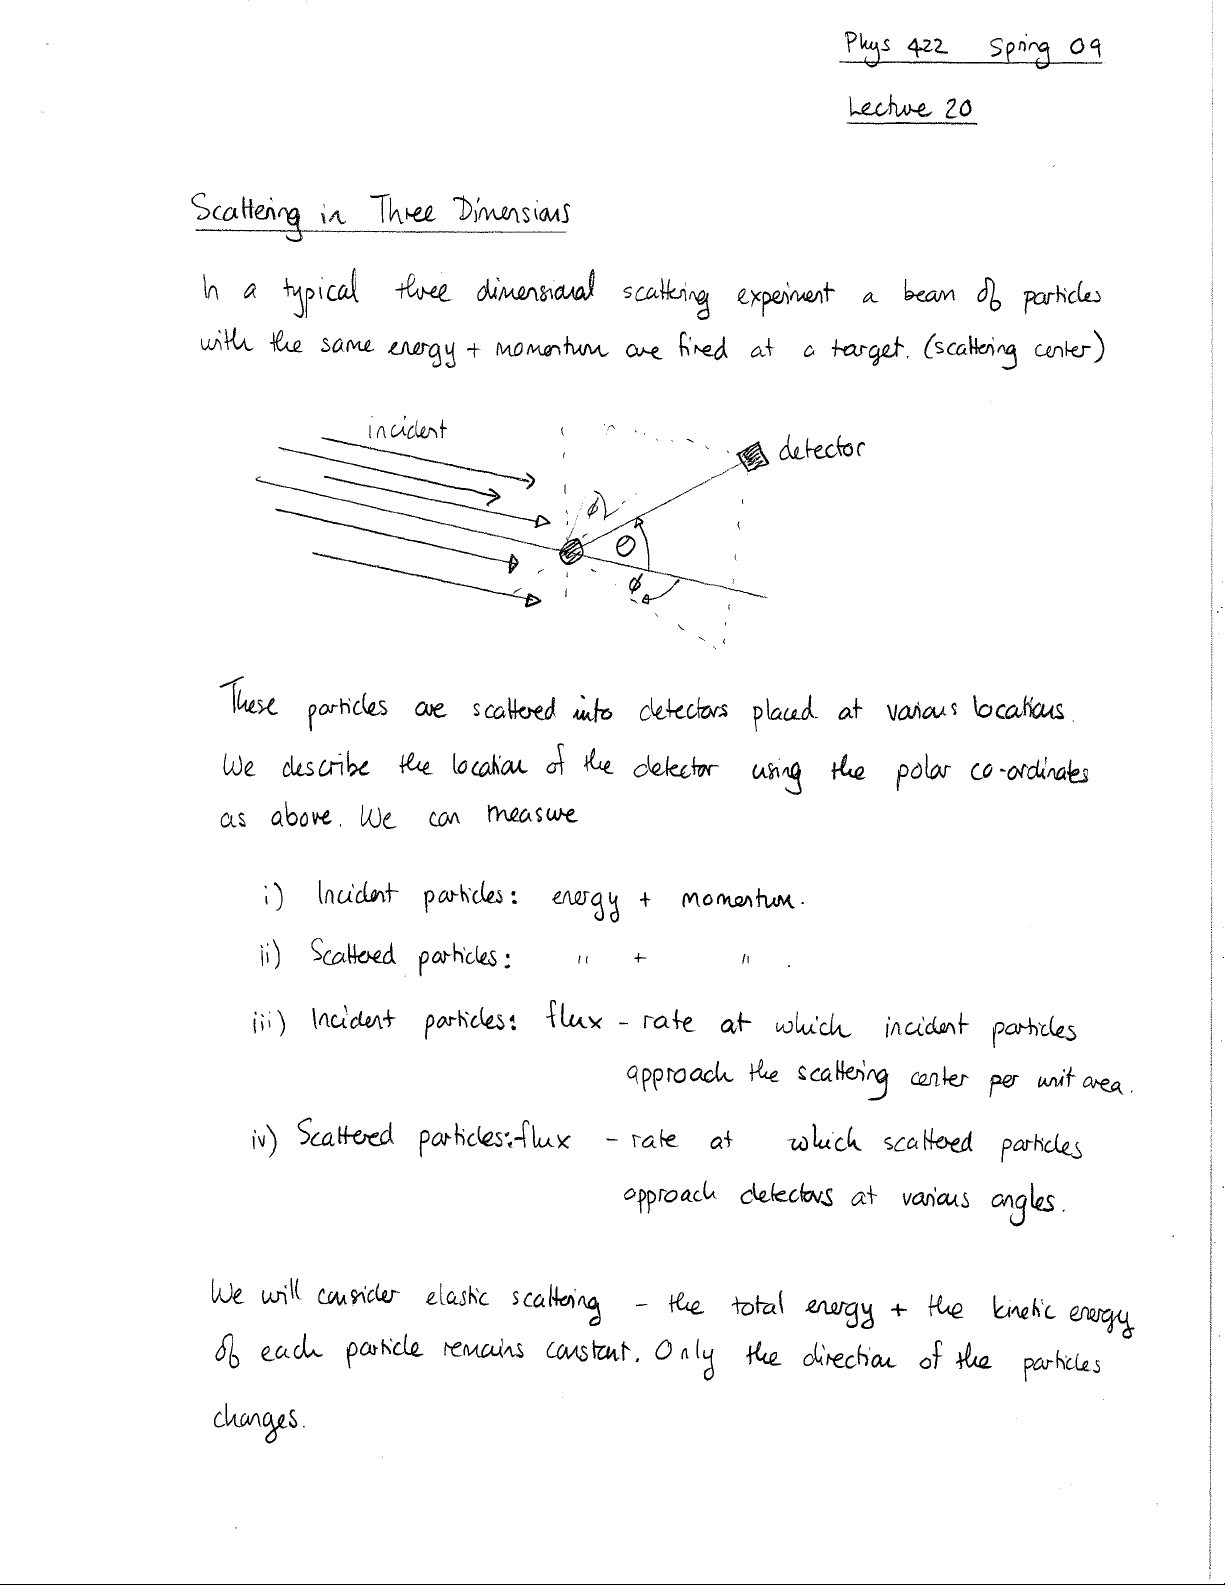 Phys 422 Spring 09
Lecture 20
Scattering in Three Dimensions
In a typical three dimensional scattering experiment a beam of particles
with the same energy + momentum are fired at a target. (scattering center)
incident
detector
ϕ
θ
ϕ
These particles are scattered into detectors placed at various locations.
We describe the location of the detector using the polar co-ordinates
as above. We can measure
i) Incident particles: energy + momentum.
ii) Scattered particles: " + " .
iii) Incident particles: flux - rate at which incident particles
approach the scattering center per unit area.
iv) Scattered particles: flux - rate at which scattered particles
approach detectors at various angles.
We will consider elastic scattering - the total energy + the kinetic energy
of each particle remains constant. Only the direction of the particles
changes.